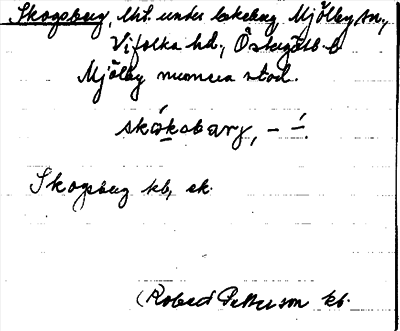 Skogsberg, lht. under Lakeberg Mjölby sn.,
Vifolka hd., Östergötl. l.
Mjölby numera stad.
skåksbarj, - –́.
Skogsberg kb, ek.
(Robert Petterson kb.